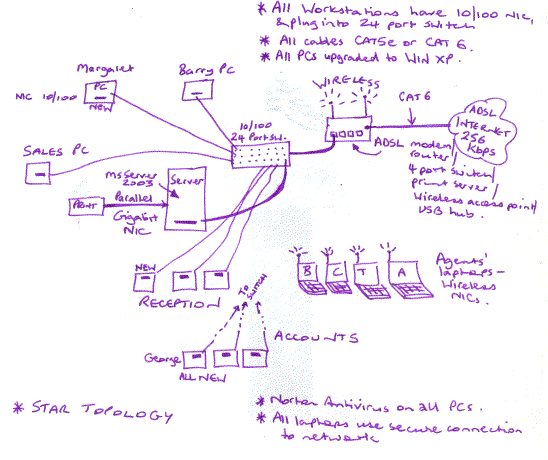 * All Workstations have 10/100 NIC,
& plug into 24 port switch
* All cables CAT5e or CAT 6.
* All PCs upgraded to WIN XP.
Margaret
PC
NEW
NIC 10/100
Barry PC
WIRELESS
CAT6
ADSL
INTERNET
256
Kbps
10/100
24 Port Sw.
ADSL modem/
router/
4 port switch/
print server/
Wireless access point/
USB hub.
SALES PC
MS Server
2003
Server
PRINT
Parallel
Gigabit
NIC
NEW
RECEPTION
TO
SWITCH
B
C
T
A
Agents'
laptops -
Wireless
NICs.
ACCOUNTS
George
ALL NEW
* STAR TOPOLOGY
* Norton Antivirus on all PCs.
* All laptops use secure connection
to network